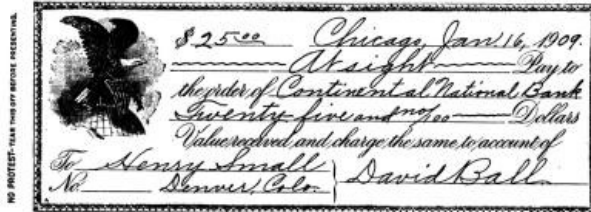 NO PROTEST-TEAR THIS OFF BEFORE PRESENTING.
$25.00 Chicago, Jan. 16, 1909.
At sight Pay to
the order of Continental National Bank
Twenty five and no/100 Dollars
Value received and charge the same to account of
To Henry Small
No. Denver, Colo. } David Ball